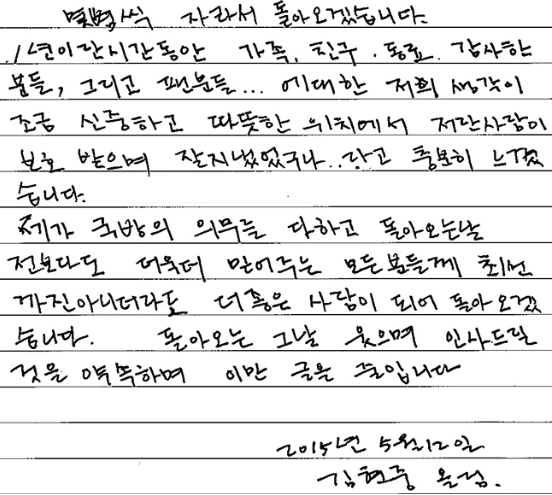 몇뼘씩 자라서 돌아오겠습니다.
1년이란시간동안 가족, 친구, 동료, 감사한
분들, 그리고 팬분들... 에대한 저희 생각이
조금 신중하고 따뜻한 위치에서 저란사람이
보호 받으며 잘지냈었구나..라고 충분히 느꼈
습니다.
제가 국방의 의무를 다하고 돌아오는날
전보다도 더욱더 믿어주는 모든분들께 최선
까진아니더라도 더좋은 사람이 되어 돌아오겠
습니다. 돌아오는 그날 웃으며 인사드릴
것을 약속하며 이만 글을 줄입니다
2015년 5월12일
김현중 올림.